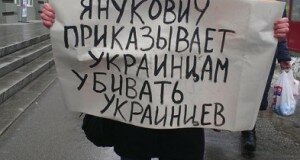 ЯНУКОВИЧ
ПРИКАЗЫВАЕТ
УКРАИНЦАМ
УБИВАТЬ
УКРАИНЦЕВ